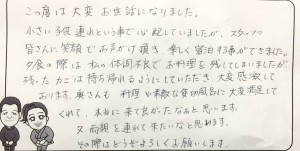 この度は大変お世話になりました。
小さい子供連れという事で心配していましたが、スタッフ
皆さんに笑顔でお声がけ頂き 楽しく宿泊する事ができました。
夕食の際は私の体調不良でお料理を残してしまいましたが
残ったカニは持ち帰れるようにしていただき、大変感激して
おります。奥さんも 料理や素敵な貸切風呂に大変満足して
くれて、本当に来て良かったなぁと思います。
又、両親を連れて来たいなと思います。
その際はどうぞよろしくお願いします。